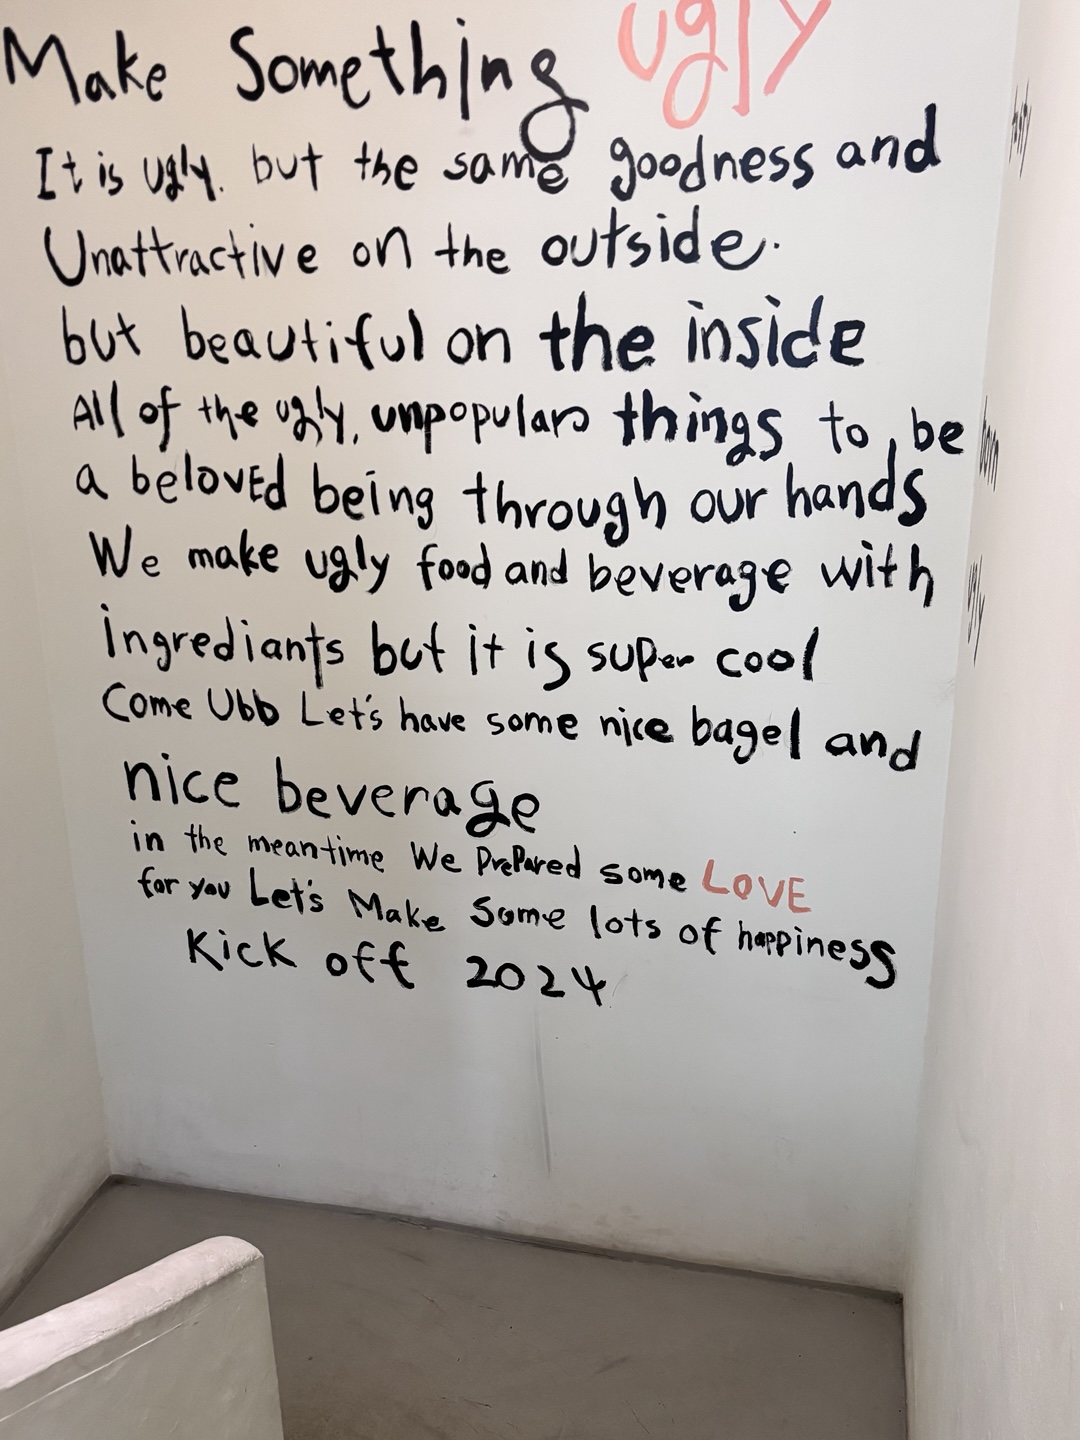 Make Something ugly
It is ugly. but the same goodness and
Unattractive on the outside.
but beautiful on the inside
All of the ugly, unpopulars things to be
a beloved being through our hands
We make ugly food and beverage with
ingrediants but it is super cool
Come Ubb Let's have some nice bagel and
nice beverage
in the meantime We PrePared some LOVE
for you Let's Make Some lots of happiness
Kick off 2024
born
ugly